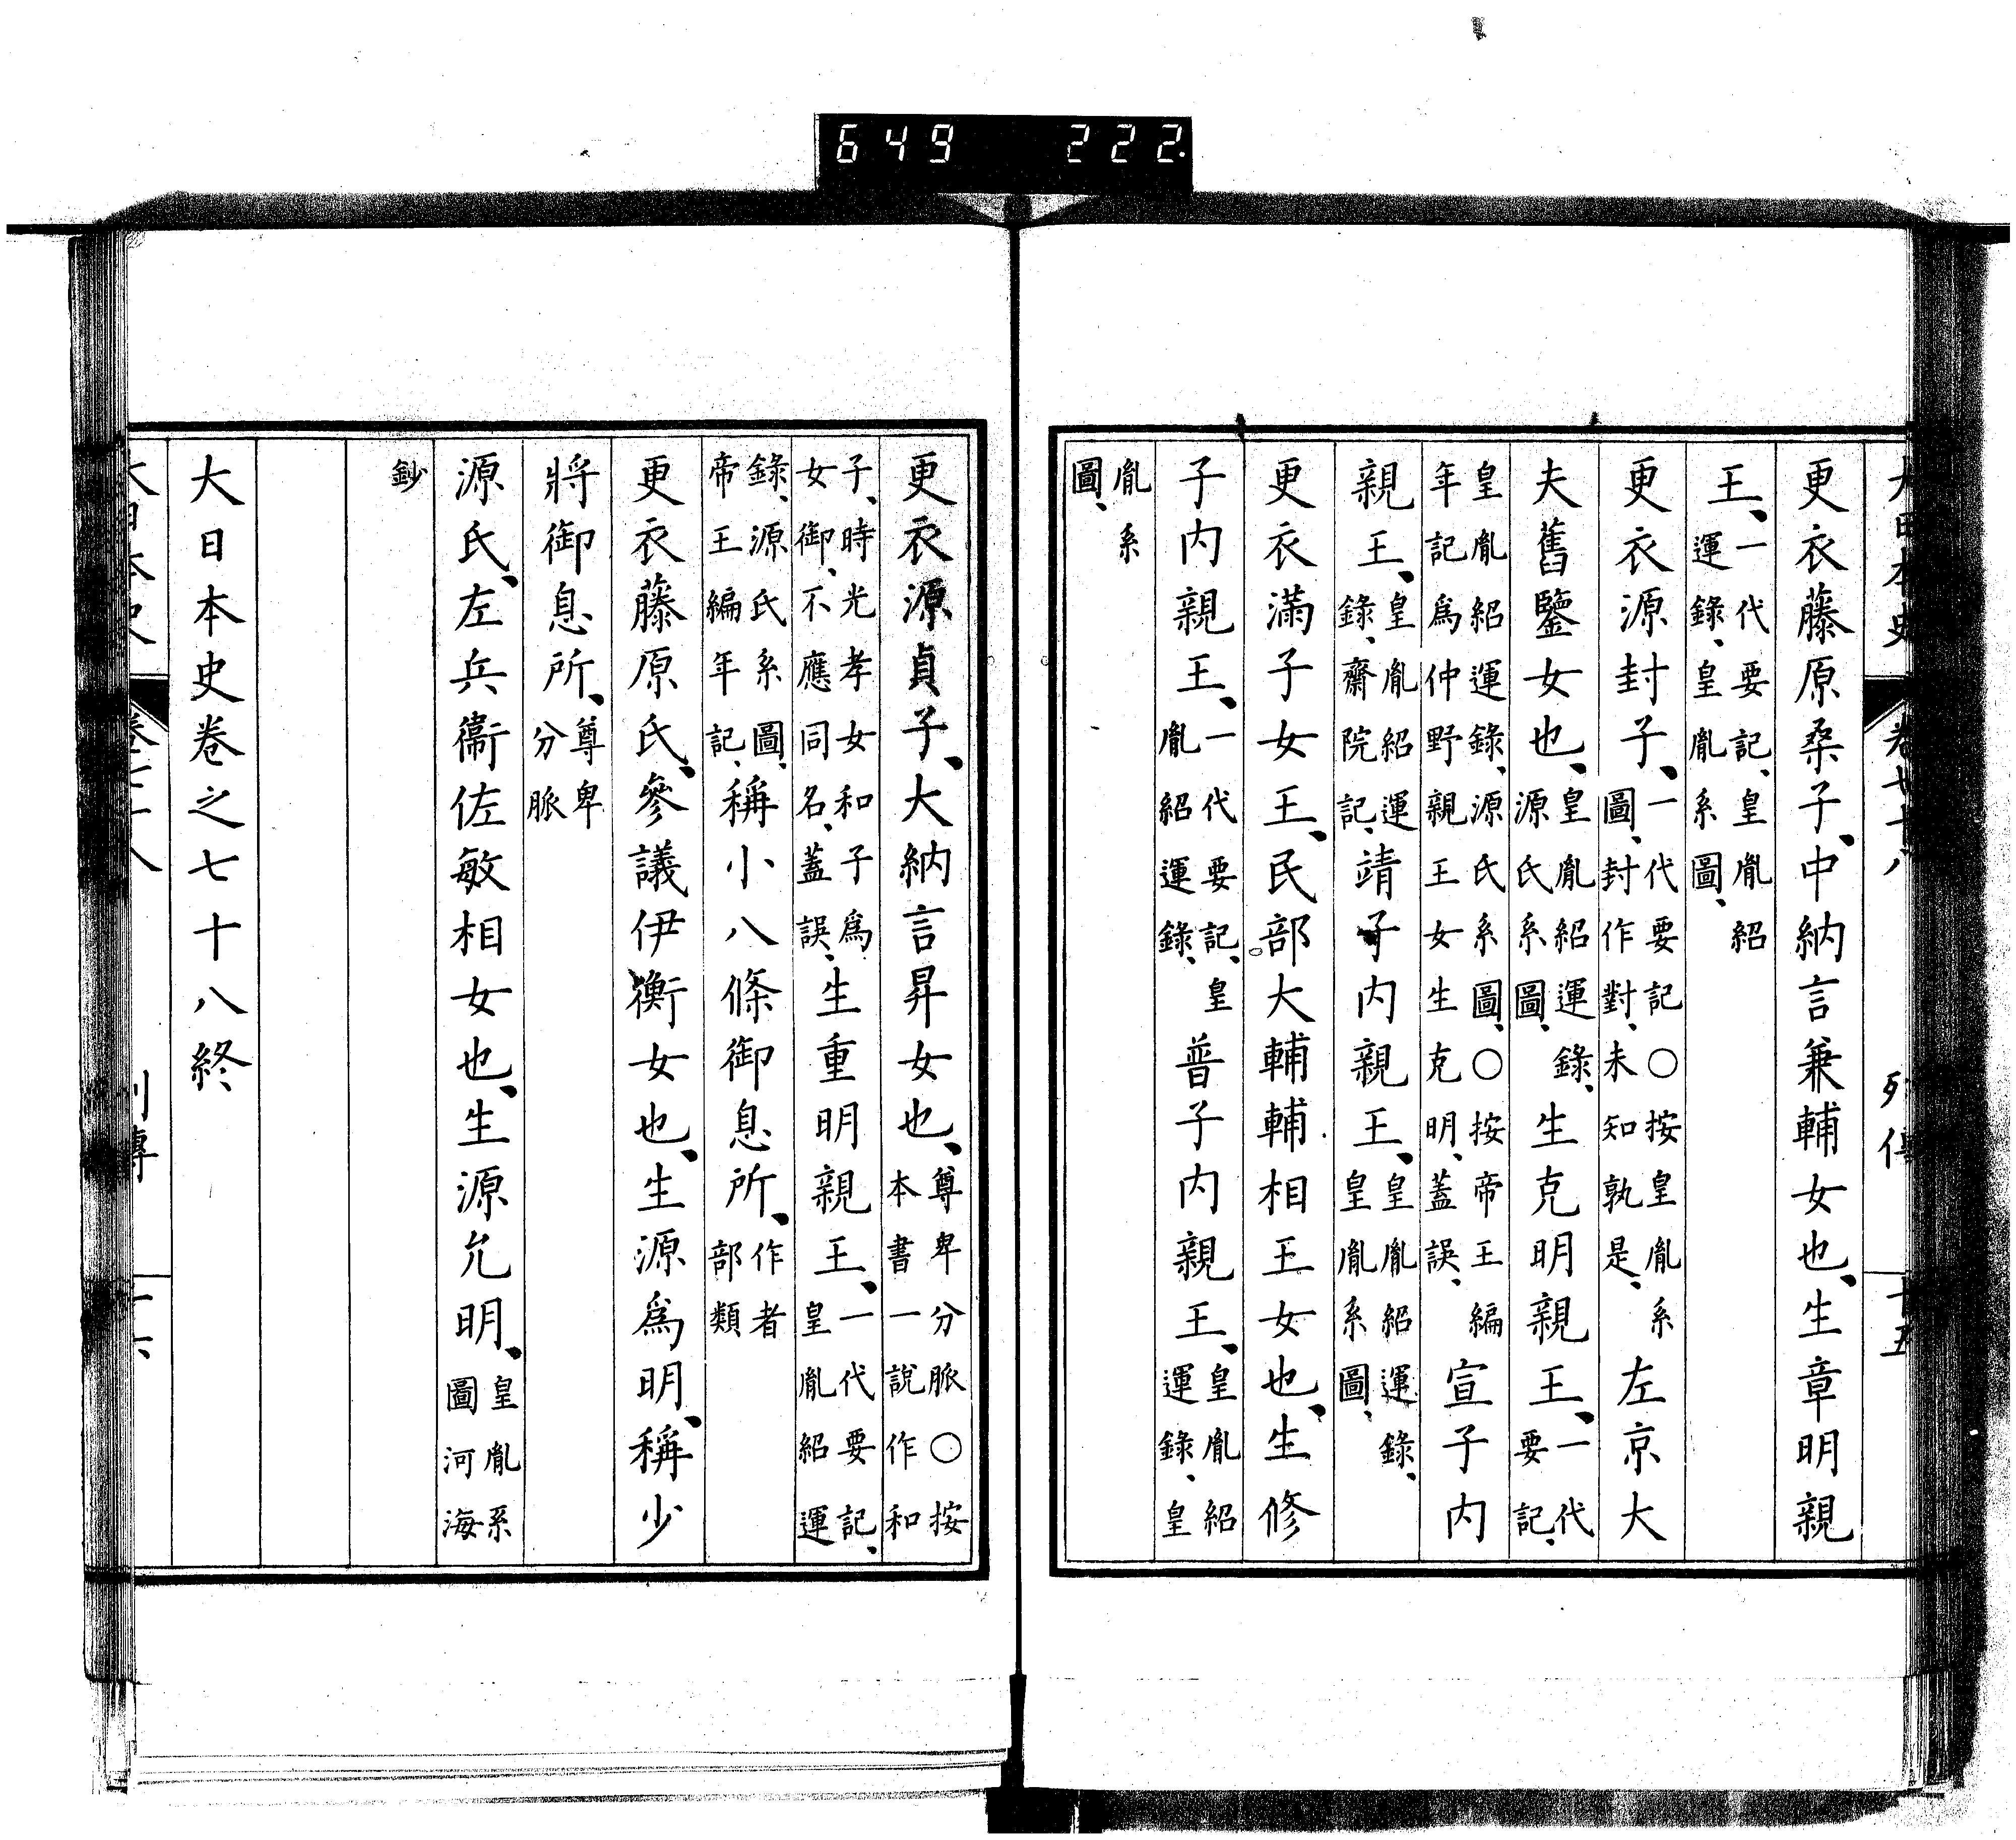 649 222
大日本史 卷七十八 列傳 十五
更衣藤原桑子、中納言兼輔女也、生章明親
王、一代要記、皇胤紹運錄、皇胤系圖、
更衣源封子、一代要記○按皇胤系圖、封作對、未知孰是、左京大
夫舊鑒女也、皇胤紹運錄、源氏系圖、生克明親王、一代要記、
皇胤紹運錄、源氏系圖、○按帝王編年記爲仲野親王女生克明、蓋誤、宣子內
親王、皇胤紹運錄、齋院記、靖子內親王、皇胤紹運錄、皇胤系圖、
更衣滿子女王、民部大輔輔相王女也、生修
子內親王、一代要記、皇胤紹運錄、普子內親王、皇胤紹運錄、皇
胤系圖、
更衣源貞子、大納言昇女也、尊卑分脈○按本書一說作和
子、時光孝女和子爲女御、不應同名、蓋誤、生重明親王、一代要記、皇胤紹運
錄、源氏系圖、帝王編年記、稱小八條御息所、作者部類
更衣藤原氏、參議伊衡女也、生源爲明、稱少
將御息所、尊卑分脈
源氏、左兵衞佐敏相女也、生源允明、皇胤系圖河海
鈔
大日本史卷之七十八終
大日本史 卷七十八 列傳 十六